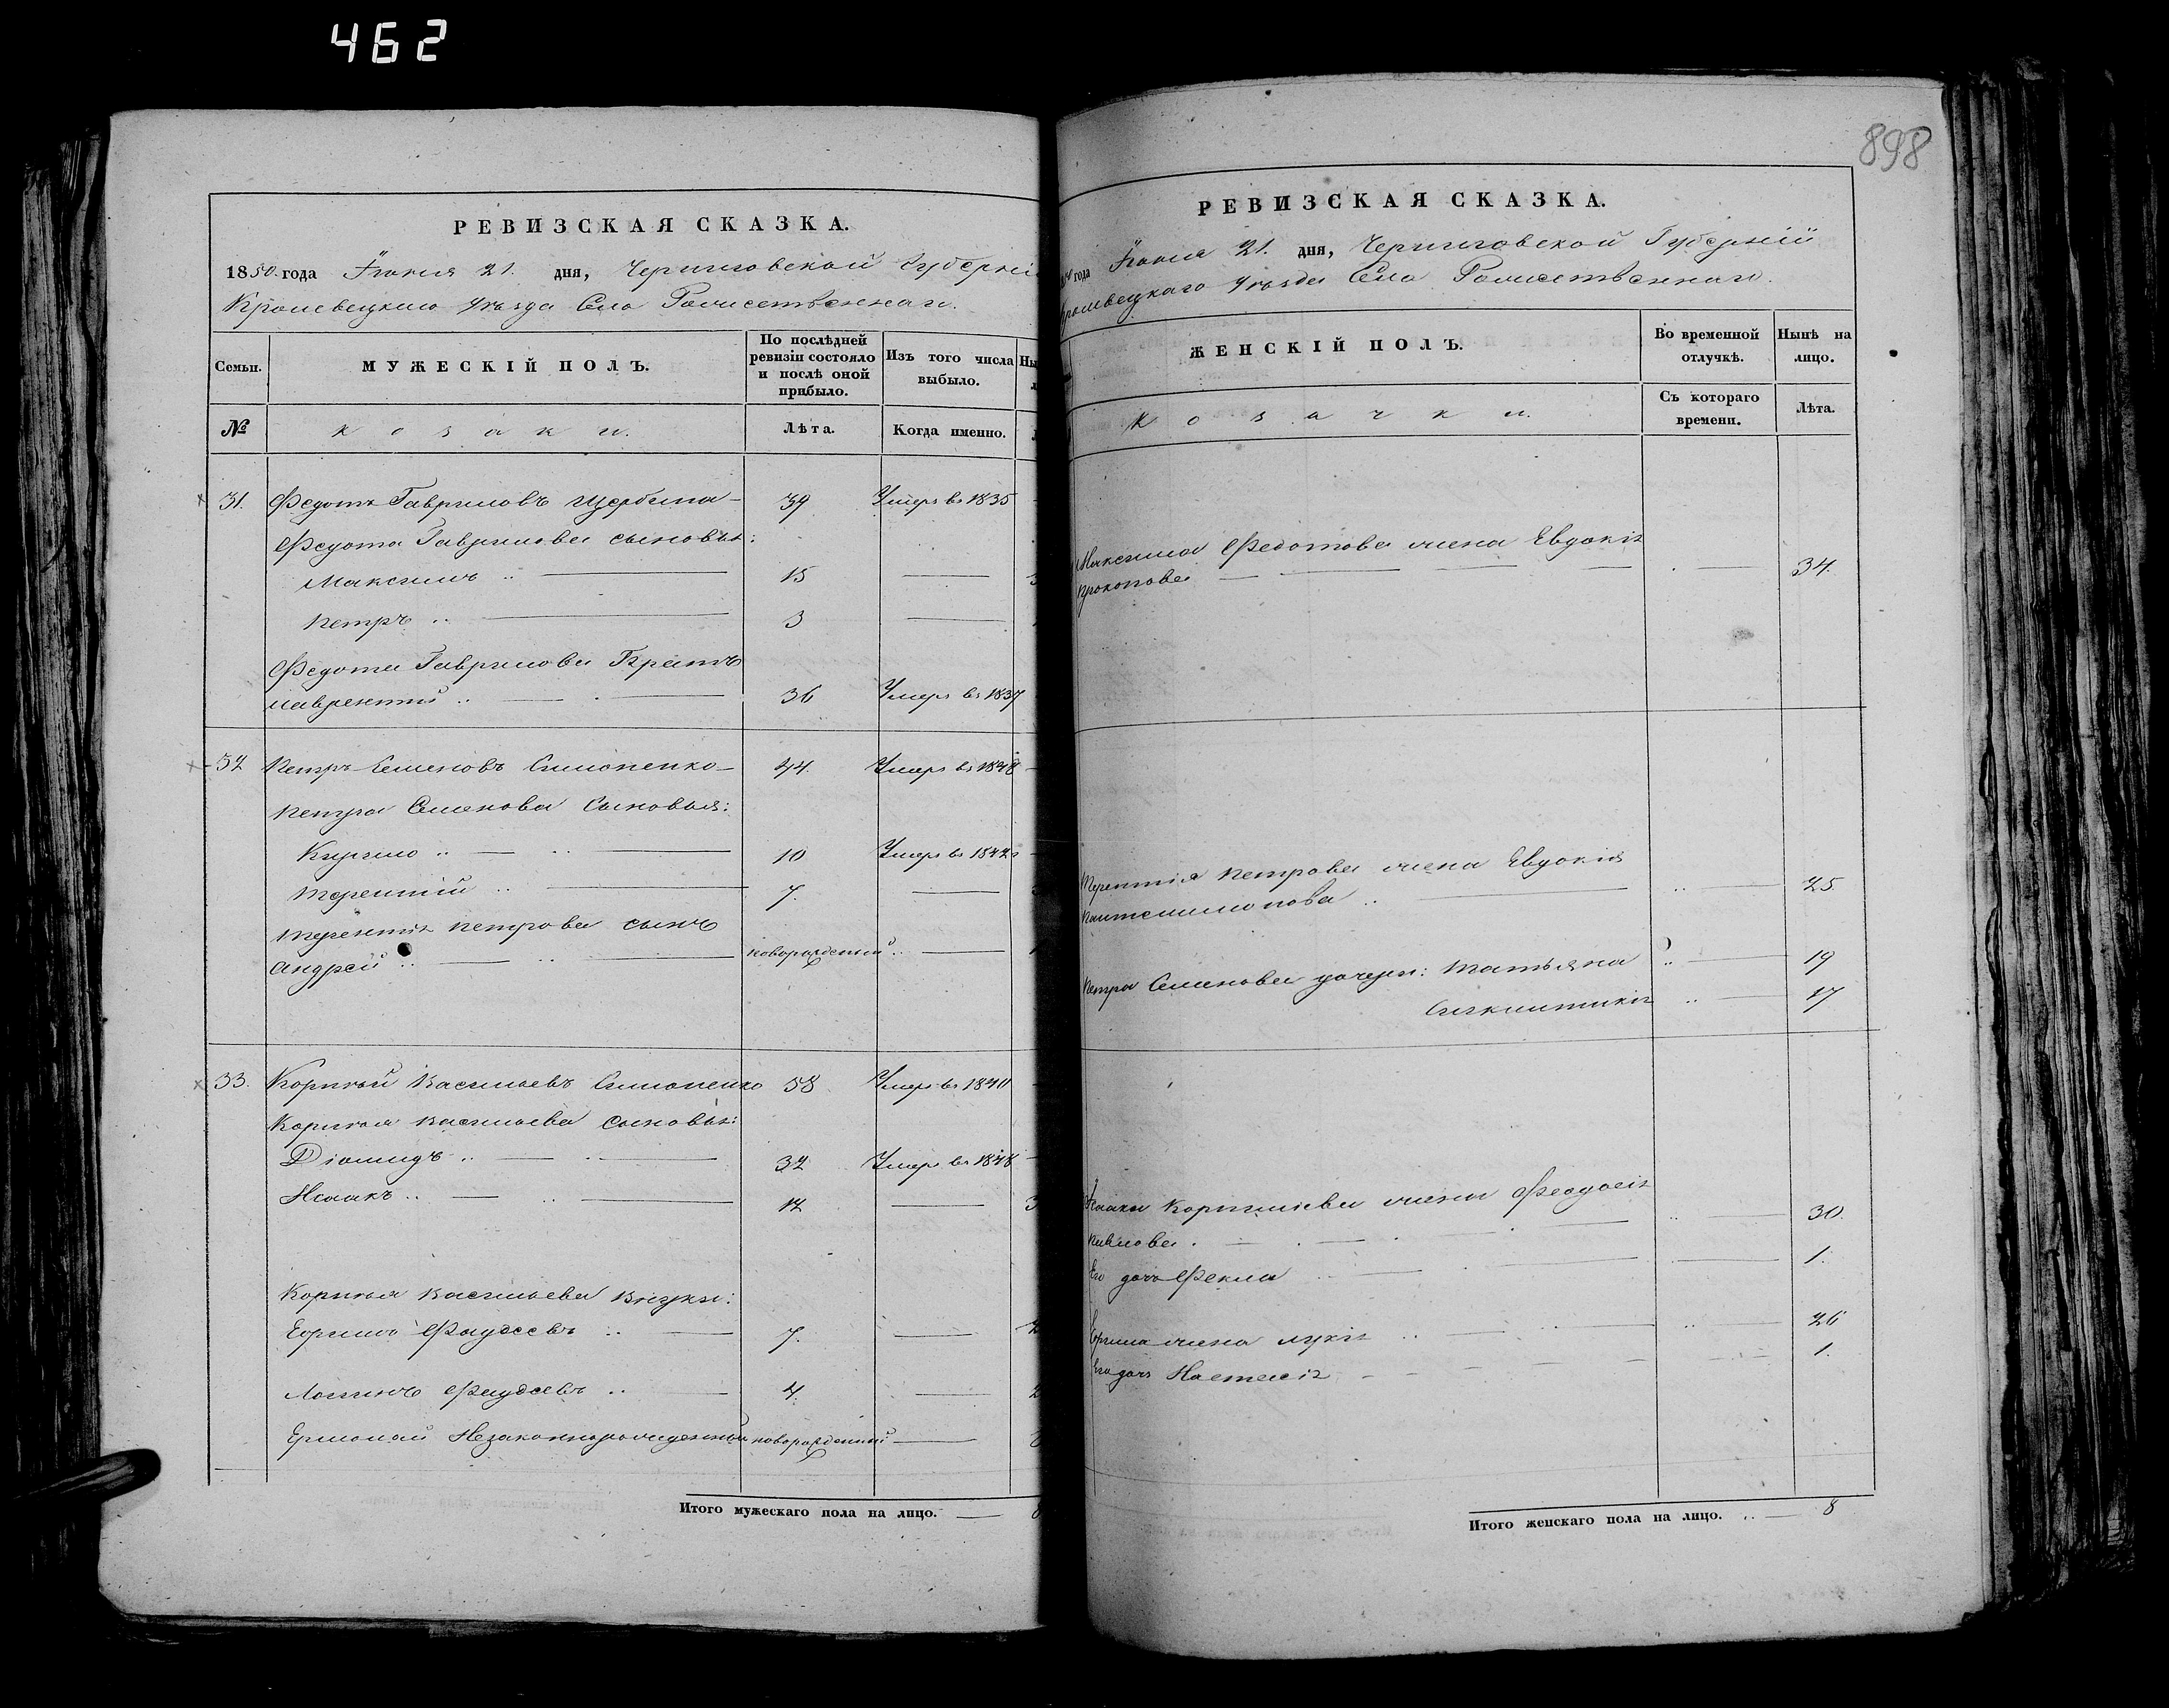 462
РЕВИЗСКАЯ СКАЗКА.
1850 года Іюня 21. дня, Черниговской Губерніи
Кролевецкаго Уѣзда Села Рожественнаго.
Семьи.
МУЖЕСКІЙ ПОЛЪ.
По послѣдней ревизіи состояло и послѣ оной прибыло.
Изъ того числа выбыло.
№
Козаки.
Лѣта.
Когда именно.
31. Федотъ Гавриловъ Щербина 39 Умеръ въ 1835
Федота Гаврилова сыновья:
Максимъ 15
Петръ 3
Федота Гаврилова Братъ
Лаврентій 36 Умеръ въ 1837
32 Петръ Семеновъ Симоненко 44. Умеръ въ 1848
Петра Семенова Сыновья:
Кирило 10 Умеръ въ 1842
Терентій 7.
Терентія Петрова сынъ
Андрей новорожденный
33. Корнѣй Васильевъ Симоненко 58 Умеръ въ 1840
Корнѣя Васильева сыновья:
Діомидъ 32 Умеръ въ 1848
Исаакъ 12
Корнѣя Васильева Внуки:
7.
Логинъ 4.
Ермолай Незаконнорожденный новорожденный
Итого мужескаго пола на лицо. 8
898
РЕВИЗСКАЯ СКАЗКА.
года Іюня 21. дня, Черниговской Губерніи
Кролевецкаго Уѣзда Села Рожественнаго.
ЖЕНСКІЙ ПОЛЪ.
Во временной отлучкѣ.
Нынѣ на лицо.
Козачки.
Съ котораго времени.
Лѣта.
Максима Федотова жена Евдокія
Прокопова 34.
Терентія Петрова жена Евдокія
Пантелимонова 25
Петра Семенова дочери: Татьяна 19
17
Исаака Корніліева жена Феодосія
Павлова 30.
Его дочь Фекла 1.
жена Лукія 26
Его дочь Настасія 1.
Итого женскаго пола на лицо. 8